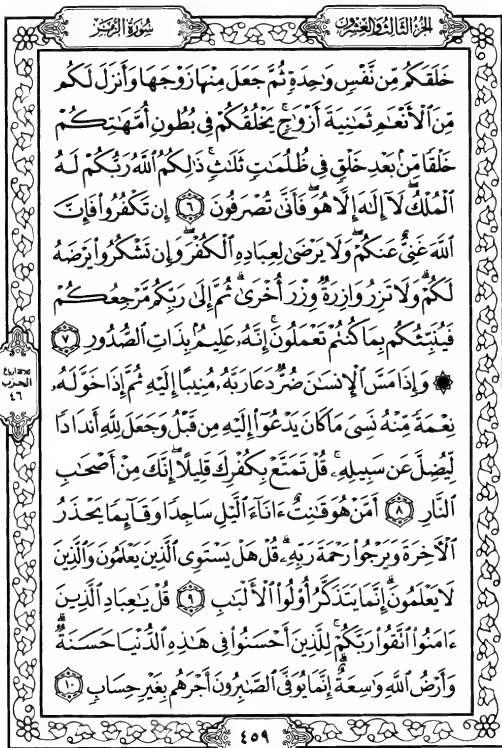 الجزء الثالث والعشرون
سورة الزمر
خَلَقَكُم مِّن نَّفْسٍ وَٰحِدَةٍ ثُمَّ جَعَلَ مِنْهَا زَوْجَهَا وَأَنزَلَ لَكُم
مِّنَ ٱلْأَنْعَٰمِ ثَمَٰنِيَةَ أَزْوَٰجٍۚ يَخْلُقُكُمْ فِى بُطُونِ أُمَّهَٰتِكُمْ
خَلْقًا مِّنۢ بَعْدِ خَلْقٍ فِى ظُلُمَٰتٍ ثَلَٰثٍۚ ذَٰلِكُمُ ٱللَّهُ رَبُّكُمْ لَهُ
ٱلْمُلْكُۖ لَآ إِلَٰهَ إِلَّا هُوَۖ فَأَنَّىٰ تُصْرَفُونَ ٦ إِن تَكْفُرُوا۟ فَإِنَّ
ٱللَّهَ غَنِىٌّ عَنكُمْۖ وَلَا يَرْضَىٰ لِعِبَادِهِ ٱلْكُفْرَۖ وَإِن تَشْكُرُوا۟ يَرْضَهُ
لَكُمْۗ وَلَا تَزِرُ وَازِرَةٌ وِزْرَ أُخْرَىٰۗ ثُمَّ إِلَىٰ رَبِّكُم مَّرْجِعُكُمْ
فَيُنَبِّئُكُم بِمَا كُنتُمْ تَعْمَلُونَۚ إِنَّهُۥ عَلِيمٌۢ بِذَاتِ ٱلصُّدُورِ ٧
۞ وَإِذَا مَسَّ ٱلْإِنسَٰنَ ضُرٌّ دَعَا رَبَّهُۥ مُنِيبًا إِلَيْهِ ثُمَّ إِذَا خَوَّلَهُۥ
نِعْمَةً مِّنْهُ نَسِىَ مَا كَانَ يَدْعُوٓا۟ إِلَيْهِ مِن قَبْلُ وَجَعَلَ لِلَّهِ أَندَادًا
لِّيُضِلَّ عَن سَبِيلِهِۦۚ قُلْ تَمَتَّعْ بِكُفْرِكَ قَلِيلًاۖ إِنَّكَ مِنْ أَصْحَٰبِ
ٱلنَّارِ ٨ أَمَّنْ هُوَ قَٰنِتٌ ءَانَآءَ ٱلَّيْلِ سَاجِدًا وَقَآئِمًا يَحْذَرُ
ٱلْأَخِرَةَ وَيَرْجُوا۟ رَحْمَةَ رَبِّهِۦۗ قُلْ هَلْ يَسْتَوِى ٱلَّذِينَ يَعْلَمُونَ وَٱلَّذِينَ
لَا يَعْلَمُونَۗ إِنَّمَا يَتَذَكَّرُ أُو۟لُوا۟ ٱلْأَلْبَٰبِ ٩ قُلْ يَٰعِبَادِ ٱلَّذِينَ
ءَامَنُوا۟ ٱتَّقُوا۟ رَبَّكُمْۚ لِلَّذِينَ أَحْسَنُوا۟ فِى هَٰذِهِ ٱلدُّنْيَا حَسَنَةٌۗ
وَأَرْضُ ٱللَّهِ وَٰسِعَةٌۗ إِنَّمَا يُوَفَّى ٱلصَّٰبِرُونَ أَجْرَهُم بِغَيْرِ حِسَابٍ ١٠
ثلاثة أرباع
الحزب
٤٦
٤٥٩